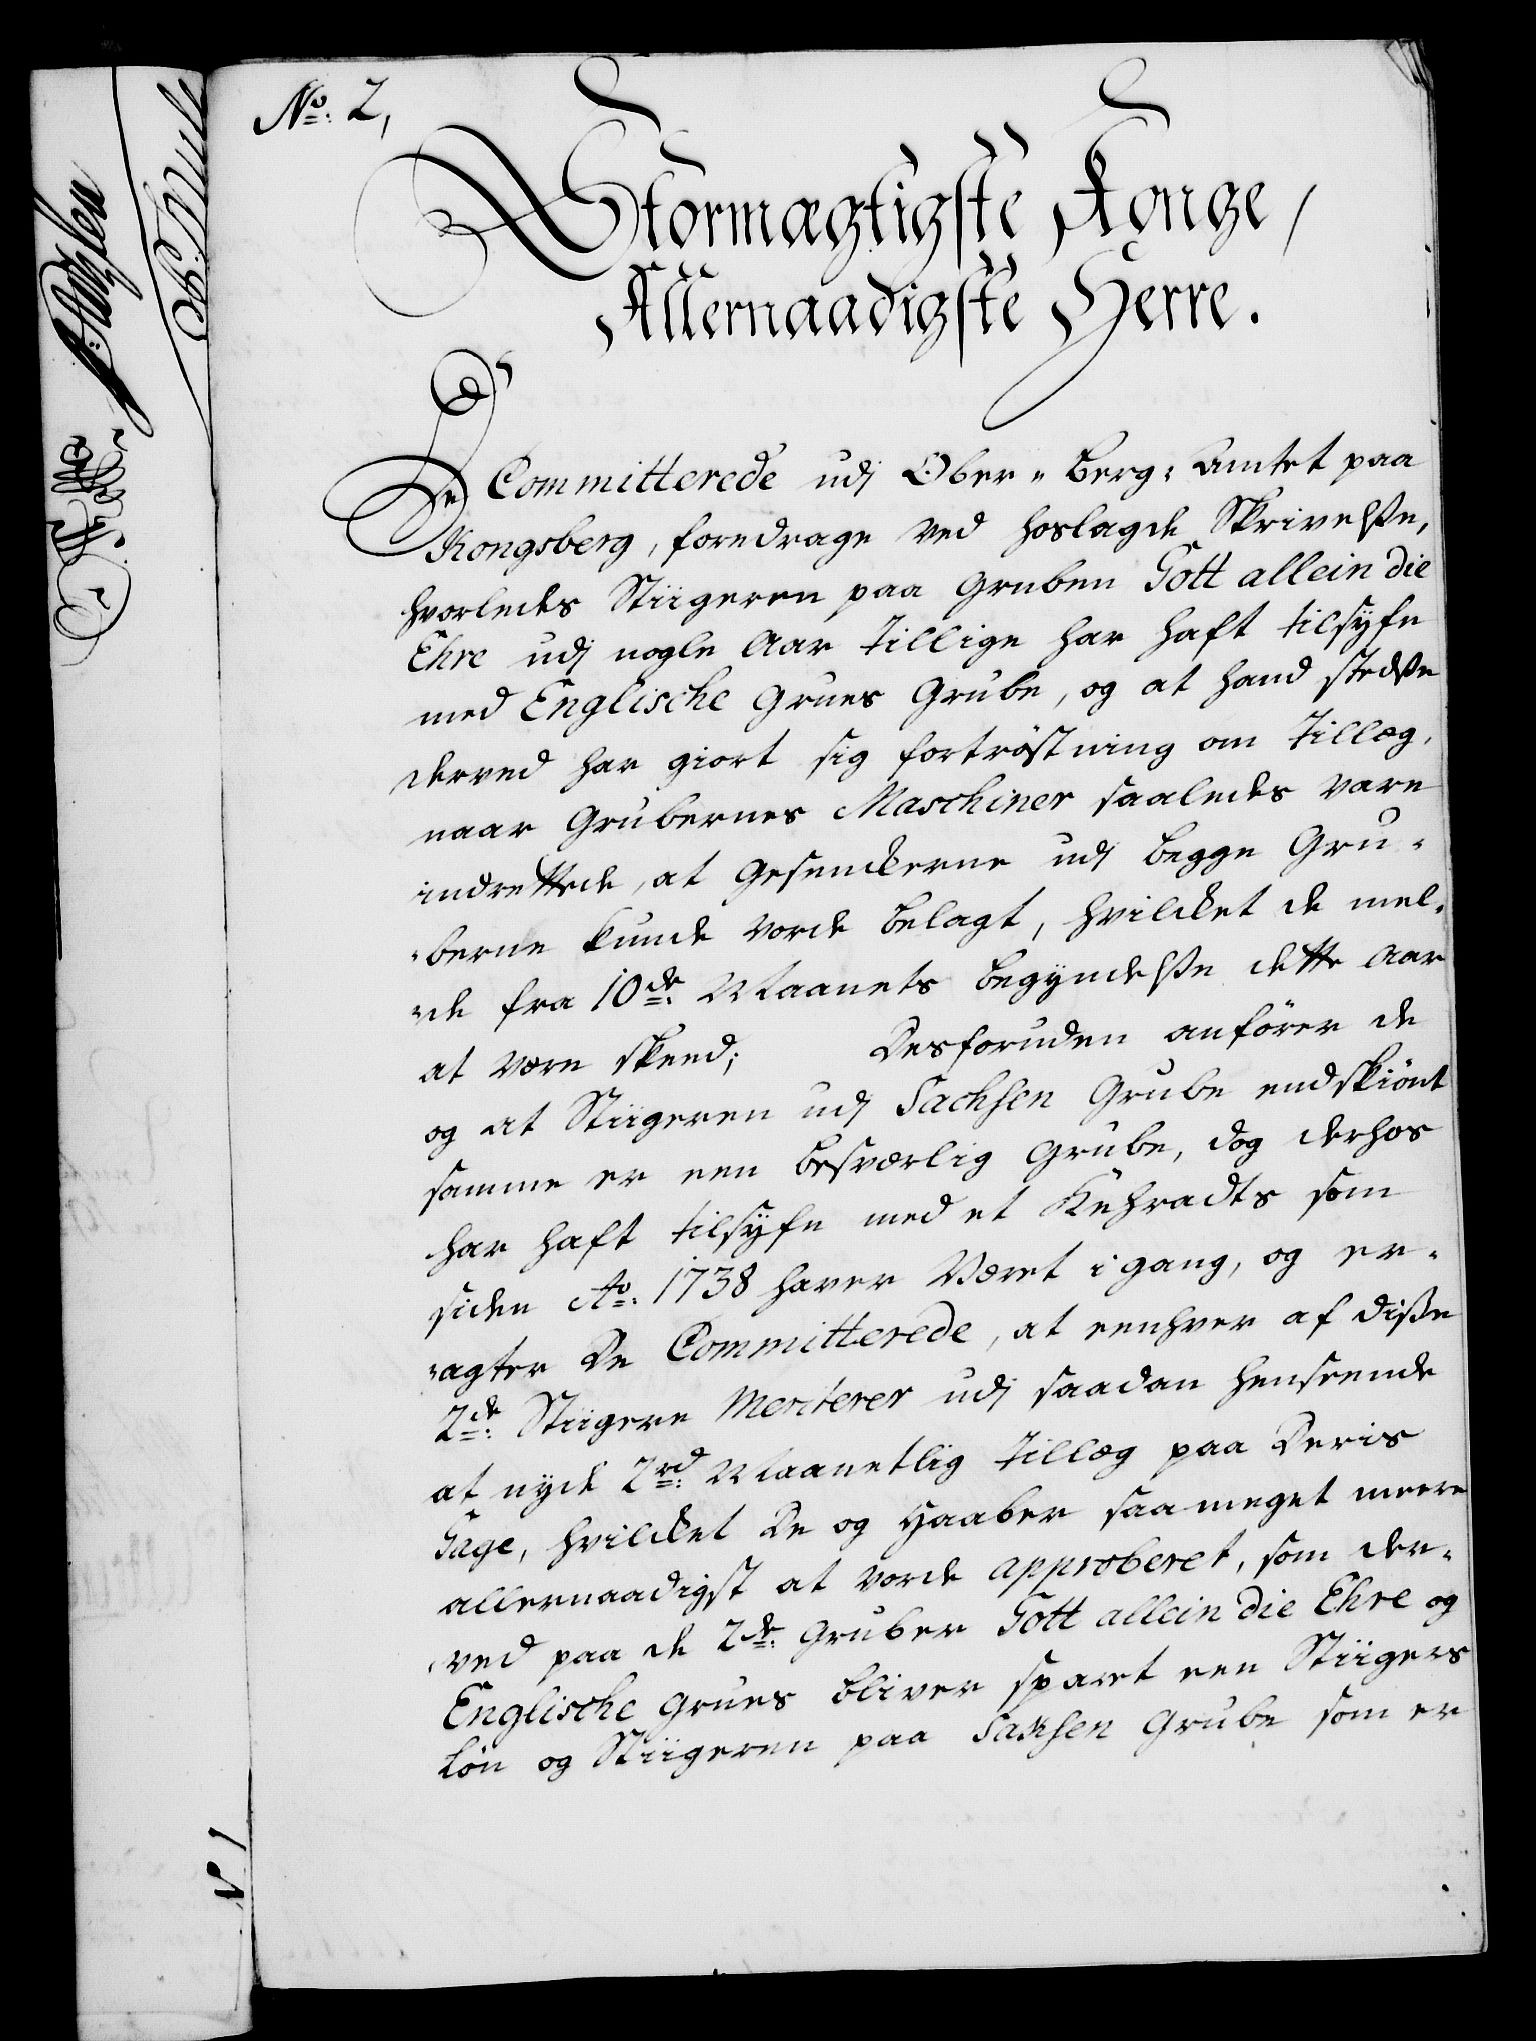 No: 2,
Stormægtigste Konge,
Allernaadigste Herre.
De Committerede udj Ober-Berg-Amtet paa
Kongsberg, foredrage ved hoslagde Skrivelsse,
hvorledes Stiigeren paa Gruben Gott allein die
Ehre udj nogle Aar tillige har haft tilsyfn
med Englische Grues Grube, og at hand stedsse
derved har giort sig fortröstning om tillæg,
naar Grubernes Maschiner saaledes vare
indrettede, at Gesenckerne udj begge Gru-
-berne kunde vorde belagt, hvilcket de mel-
-de fra 10de: Maanets begyndelsse dette Aar
at være skeed; Desforuden anfører de
og at Stiigeren udj Sachsen Grube endskiönt
samme er een besværlig Grube, dog derhos
har haft tilsyfn med et Kehradts som
siden Ao: 1738 haver Været i gang, og er-
-agter De Committerede, at eenhver af disse
2de: Stiigere Meriterer udj saadan henseende
at nyde 2rd: Maanetlig tillæg paa Deris
Gage, hvilcket De og Haaber saa meget meere
allernaadigst at vorde approberet, som der-
-ved paa de 2de: Gruber Gott allein die Ehre og
Englische Grues bliver sparet een Stiigers
Lön og Stiigeren paa Sachsen Grube som er
N 1